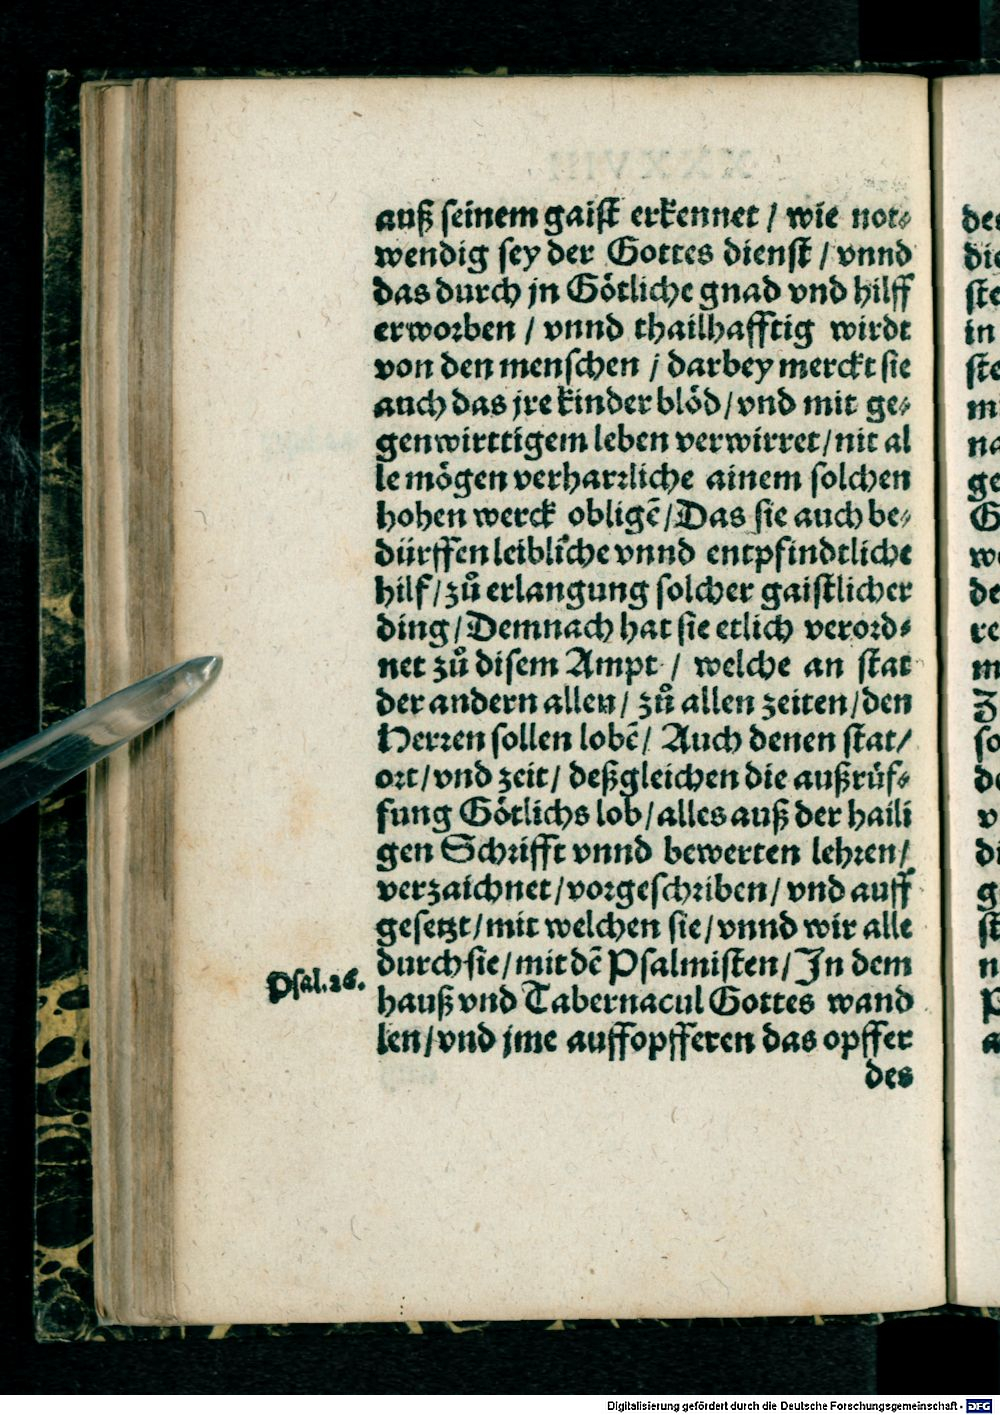 auß seinem gaist erkennet / wie not⸗
wendig sey der Gottes dienst / vnnd
das durch jn Götliche gnad vnd hilff
erworben / vnnd thailhafftig wirdt
von den menschen / darbey merckt sie
auch das jre kinder blöd / vnd mit ge⸗
genwirttigem leben verwirret / nit al
le mögen verharrliche ainem solchen
hohen werck obligē / Das sie auch be⸗
dürffen leibliche vnnd entpfindtliche
hilf / zů erlangung solcher gaistlicher
ding / Demnach hat sie etlich verord⸗
net zů disem Ampt / welche an stat
der andern allen / zů allen zeiten / den
Herren sollen lobē / Auch denen stat /
ort / vnd zeit / deßgleichen die außrüf⸗
fung Götlichs lob / alles auß der haili
gen Schrifft vnnd bewerten lehren /
verzaichnet / vorgeschriben / vnd auff
gesetzt / mit welchen sie / vnnd wir alle
durch sie / mit dē Psalmisten / In dem
Psal. 26.
hauß vnd Tabernacul Gottes wand
len / vnd jme auffopfferen das opffer
des
Digitalisierung gefördert durch die Deutsche Forschungsgemeinschaft - DFG